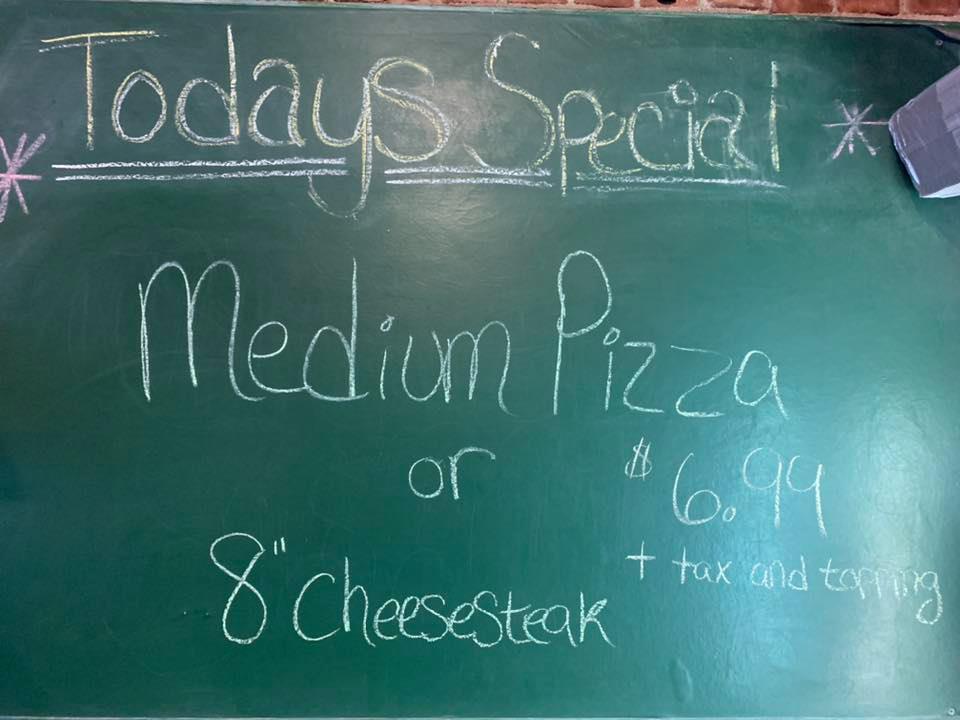 Todays Special
Medium Pizza
or
$6.99
+ tax and topping
8" Cheesesteak